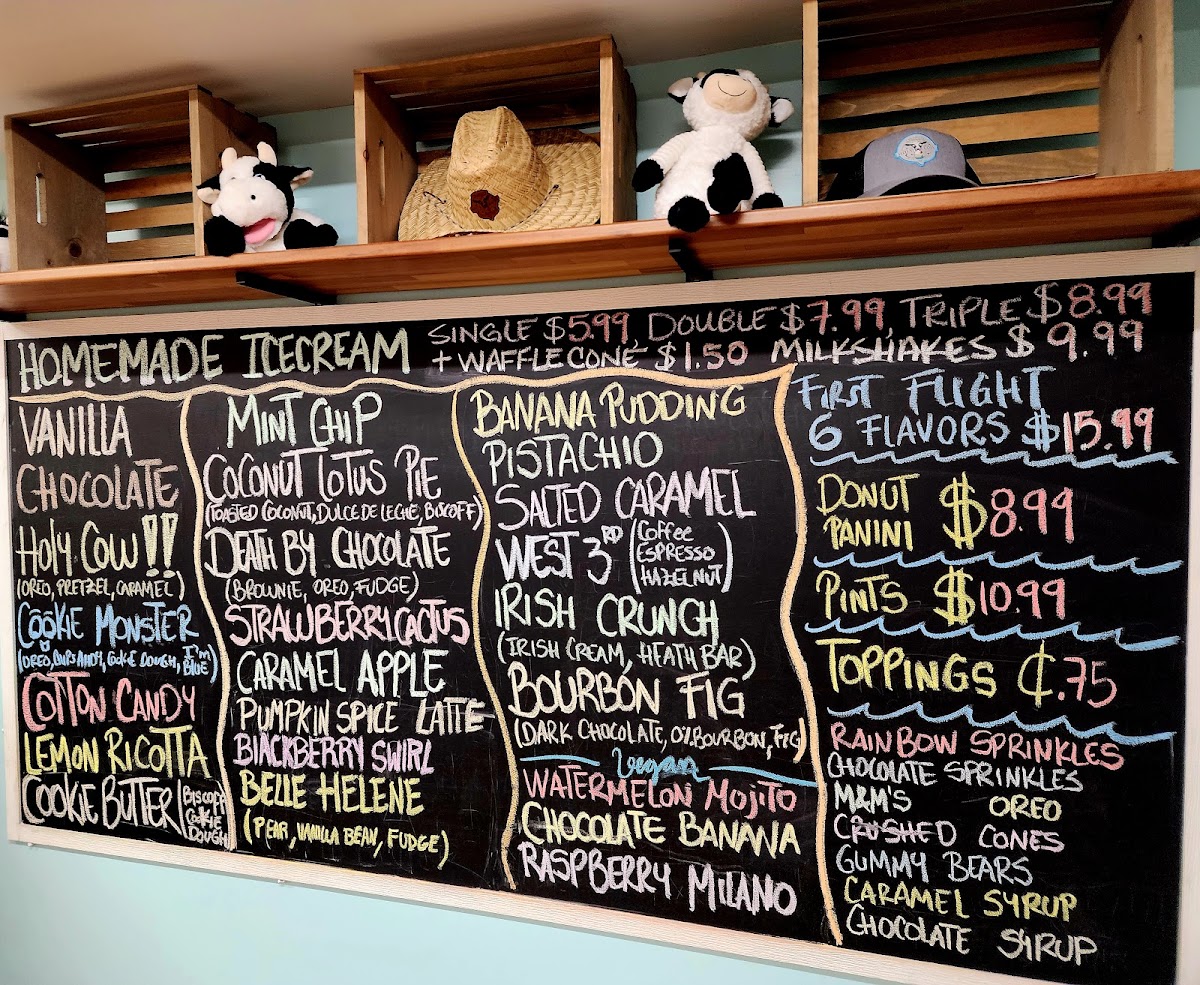 HOMEMADE ICECREAM
SINGLE $5.99, DOUBLE $7.99, TRIPLE $8.99
+ WAFFLE CONE $1.50 MILKSHAKES $9.99
VANILLA
CHOCOLATE
HOLY COW!!
(OREO, PRETZEL, CARAMEL)
COOKIE MONSTER
(OREO, CHIPS AHOY, COOKIE DOUGH, I'm BLUE)
COTTON CANDY
LEMON RICOTTA
COOKIE BUTTER (BISCOFF
COOKIE
DOUGH)
MINT CHIP
COCONUT LOTUS PIE
(TOASTED COCONUT, DULCE DE LECHE, BISCOFF)
DEATH BY CHOCOLATE
(BROWNIE, OREO, FUDGE)
STRAWBERRY CACTUS
CARAMEL APPLE
PUMPKIN SPICE LATTE
BLACKBERRY SWIRL
BELLE HELENE
(PEAR, VANILLA BEAN, FUDGE)
BANANA PUDDING
PISTACHIO
SALTED CARAMEL
WEST 3RD (Coffee
ESPRESSO
HAZELNUT)
IRISH CRUNCH
(IRISH CREAM, HEATH BAR)
BOURBON FIG
(DARK CHOCOLATE, 0% BOURBON, FIG)
Vegan
WATERMELON MOJITO
CHOCOLATE BANANA
RASPBERRY MILANO
FIRST FLIGHT
6 FLAVORS $15.99
DONUT
PANINI $8.99
PINTS $10.99
TOPPINGS ₵.75
RAINBOW SPRINKLES
CHOCOLATE SPRINKLES
M&M'S OREO
CRUSHED CONES
GUMMY BEARS
CARAMEL SYRUP
CHOCOLATE SYRUP